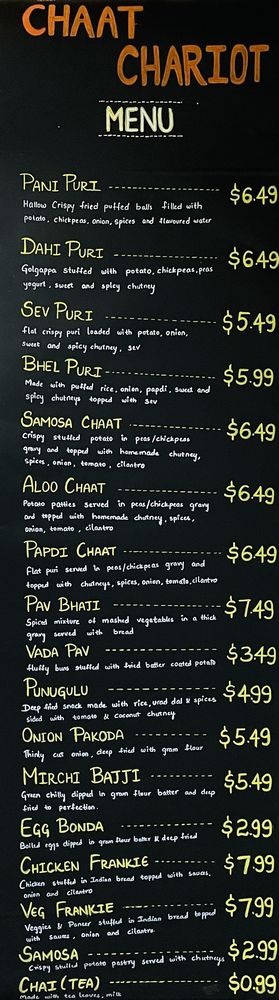 CHAAT
CHARIOT
MENU
PANI PURI $6.49
Hallow Crispy fried puffed balls filled with
potato, chickpeas, onion, spices and flavoured water
DAHI PURI $6.49
Golgappa stuffed with potato, chickpeas, peas
yogurt, sweet and spicy chutney
SEV PURI $5.49
flat crispy puri loaded with potato, onion,
sweet and spicy chutney, sev
BHEL PURI $5.99
Made with puffed rice, onion, papdi, sweet and
spicy chutneys topped with sev
SAMOSA CHAAT $6.49
Crispy stuffed potato in peas/chickpeas
gravy and topped with homemade chutney,
spices, onion, tomato, cilantro
ALOO CHAAT $6.49
Potato patties served in peas/chickpeas gravy
and topped with homemade chutney, spices,
onion, tomato, cilantro
PAPDI CHAAT $6.49
Flat puri served in peas/chickpeas gravy and
topped with chutneys, spices, onion, tomato, cilantro
PAV BHAJI $7.49
Spiced mixture of mashed vegetables in a thick
gravy served with bread
VADA PAV $3.49
fluffy buns stuffed with fried batter coated potato
PUNUGULU $4.99
Deep fried snack made with rice, urad dal & spices
sided with tomato & coconut chutney
ONION PAKODA $5.49
Thinly cut onion, deep fried with gram flour
MIRCHI BAJJI $5.49
Green chilly dipped in gram flour batter and deep
fried to perfection.
EGG BONDA $2.99
Boiled eggs dipped in gram flour batter & deep fried
CHICKEN FRANKIE $7.99
Chicken stuffed in Indian bread topped with sauces,
onion and cilantro
VEG FRANKIE $7.99
Veggies & Paneer stuffed in Indian bread topped
with sauces, onion and cilantro
SAMOSA $2.99
Crispy stuffed potato pastry served with chutneys
CHAI (TEA) $0.99
Made with tea leaves, milk